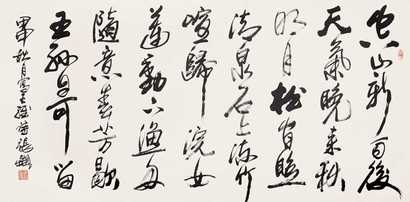 空山新雨後
天氣晚來秋
明月松間照
清泉石上流竹
喧歸浣女
蓮動下漁舟
隨意春芳歇
王孫自可留
甲申秋月